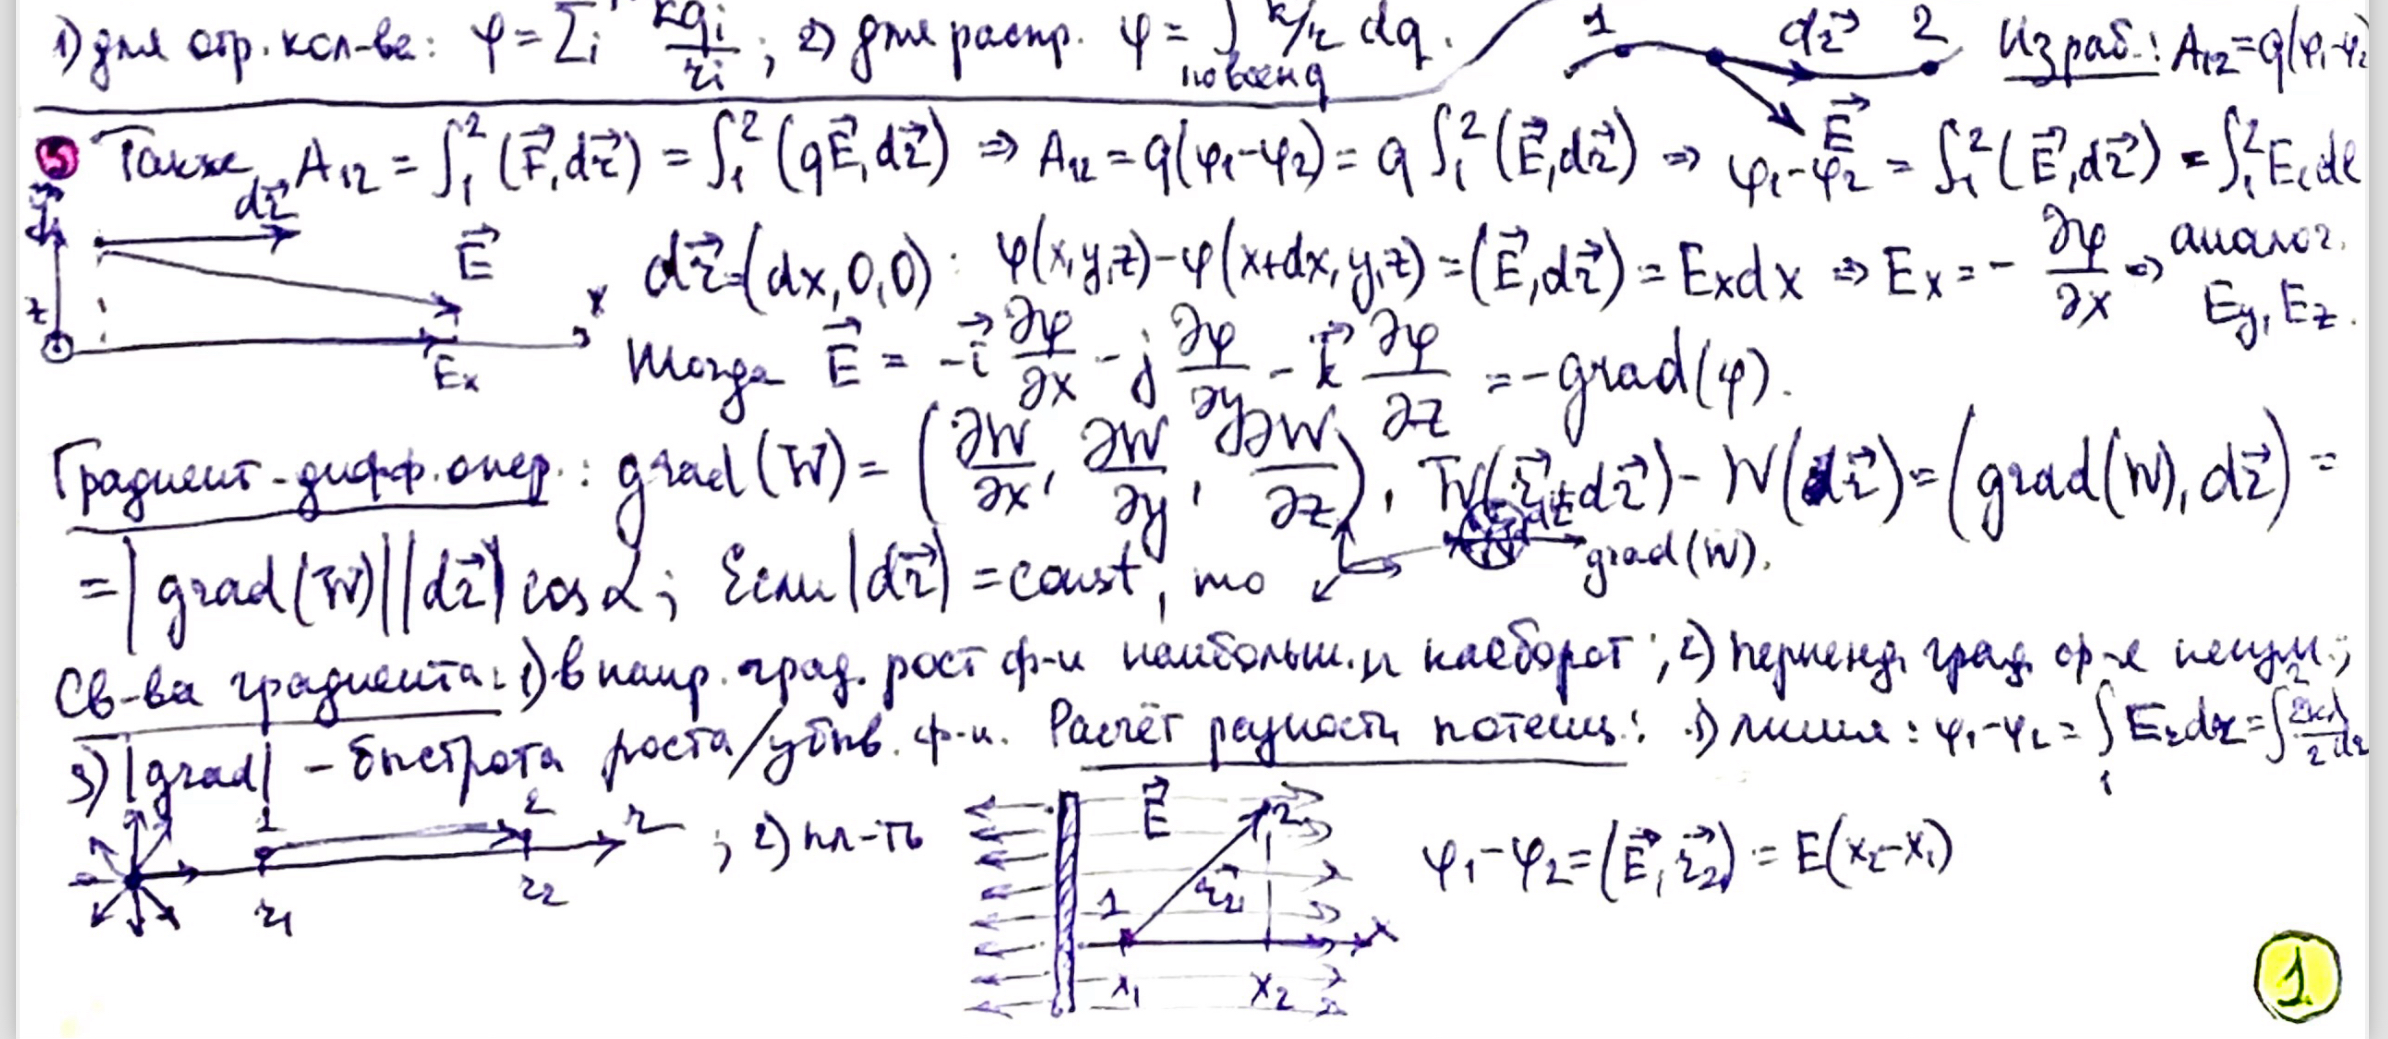 1) для огр. кол-ва: φ = Σi kqi/ri ; 2) для распр. φ = ∫ по всем q k/r dq.
1 dr⃗ 2 E⃗ Из раб.: A12 = q(φ1-φ2
5 Также, A12 = ∫₁² (F⃗, dr⃗) = ∫₁² (qE⃗, dr⃗) ⇒ A12 = q(φ1-φ2) = q ∫₁² (E⃗, dr⃗) ⇒ φ1-φ2 = ∫₁² (E⃗, dr⃗) = ∫₁² El dl
y dr⃗ E⃗ z x Ex
dr⃗ = (dx, 0, 0) : φ(x,y,z) - φ(x+dx, y, z) = (E⃗, dr⃗) = Ex dx ⇒ Ex = - ∂φ/∂x ⇒ аналог. Ey, Ez.
Тогда E⃗ = -i⃗ ∂φ/∂x - j ∂φ/∂y - k⃗ ∂φ/∂z = -grad(φ).
Градиент - дифф. опер.: grad(W) = (∂W/∂x, ∂W/∂y, ∂W/∂z), W(r⃗+dr⃗) - W(dr⃗) = (grad(W), dr⃗) =
= |grad(W)||dr⃗| cos α; Если |dr⃗| = const, то grad(W).
Св-ва градиента: 1) в напр. град. рост ф-и наибольш. и наоборот; 2) перпенд. град. ф-я неизм.;
3) |grad| - быстрота роста/убыв. ф-и. Расчёт разности потенц.: 1) линия: φ1-φ2 = ∫₁² Er dr = ∫ 2kλ/r dr
1 2 r r1 r2 ; 2) пл-ть E⃗ 1 2 r⃗12 x x1 x2 φ1-φ2 = (E⃗, r⃗12) = E(x2-x1)
1